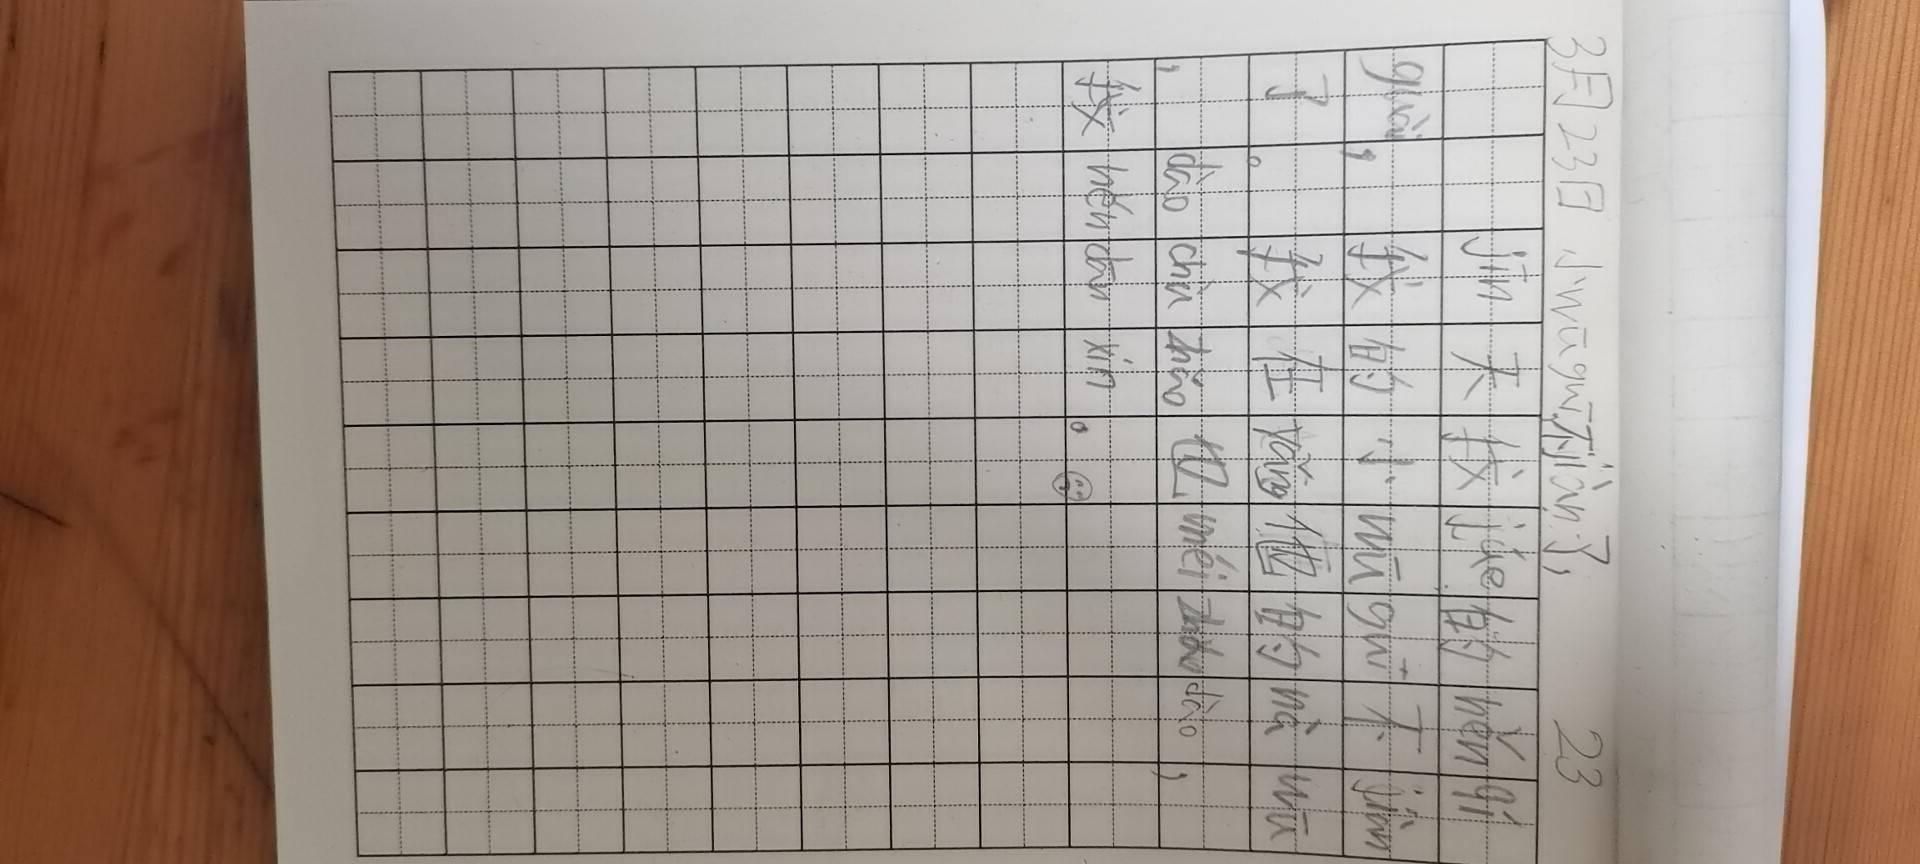 3月23日 小wūguī不jiàn了, 23
jīn天我jué的hěn qí
guài,我的小wū guī不jiàn
了。我在yǎng他的nà wū
,dào chù zhǎo也méi zhǎo dào,
我hěn dān xīn。